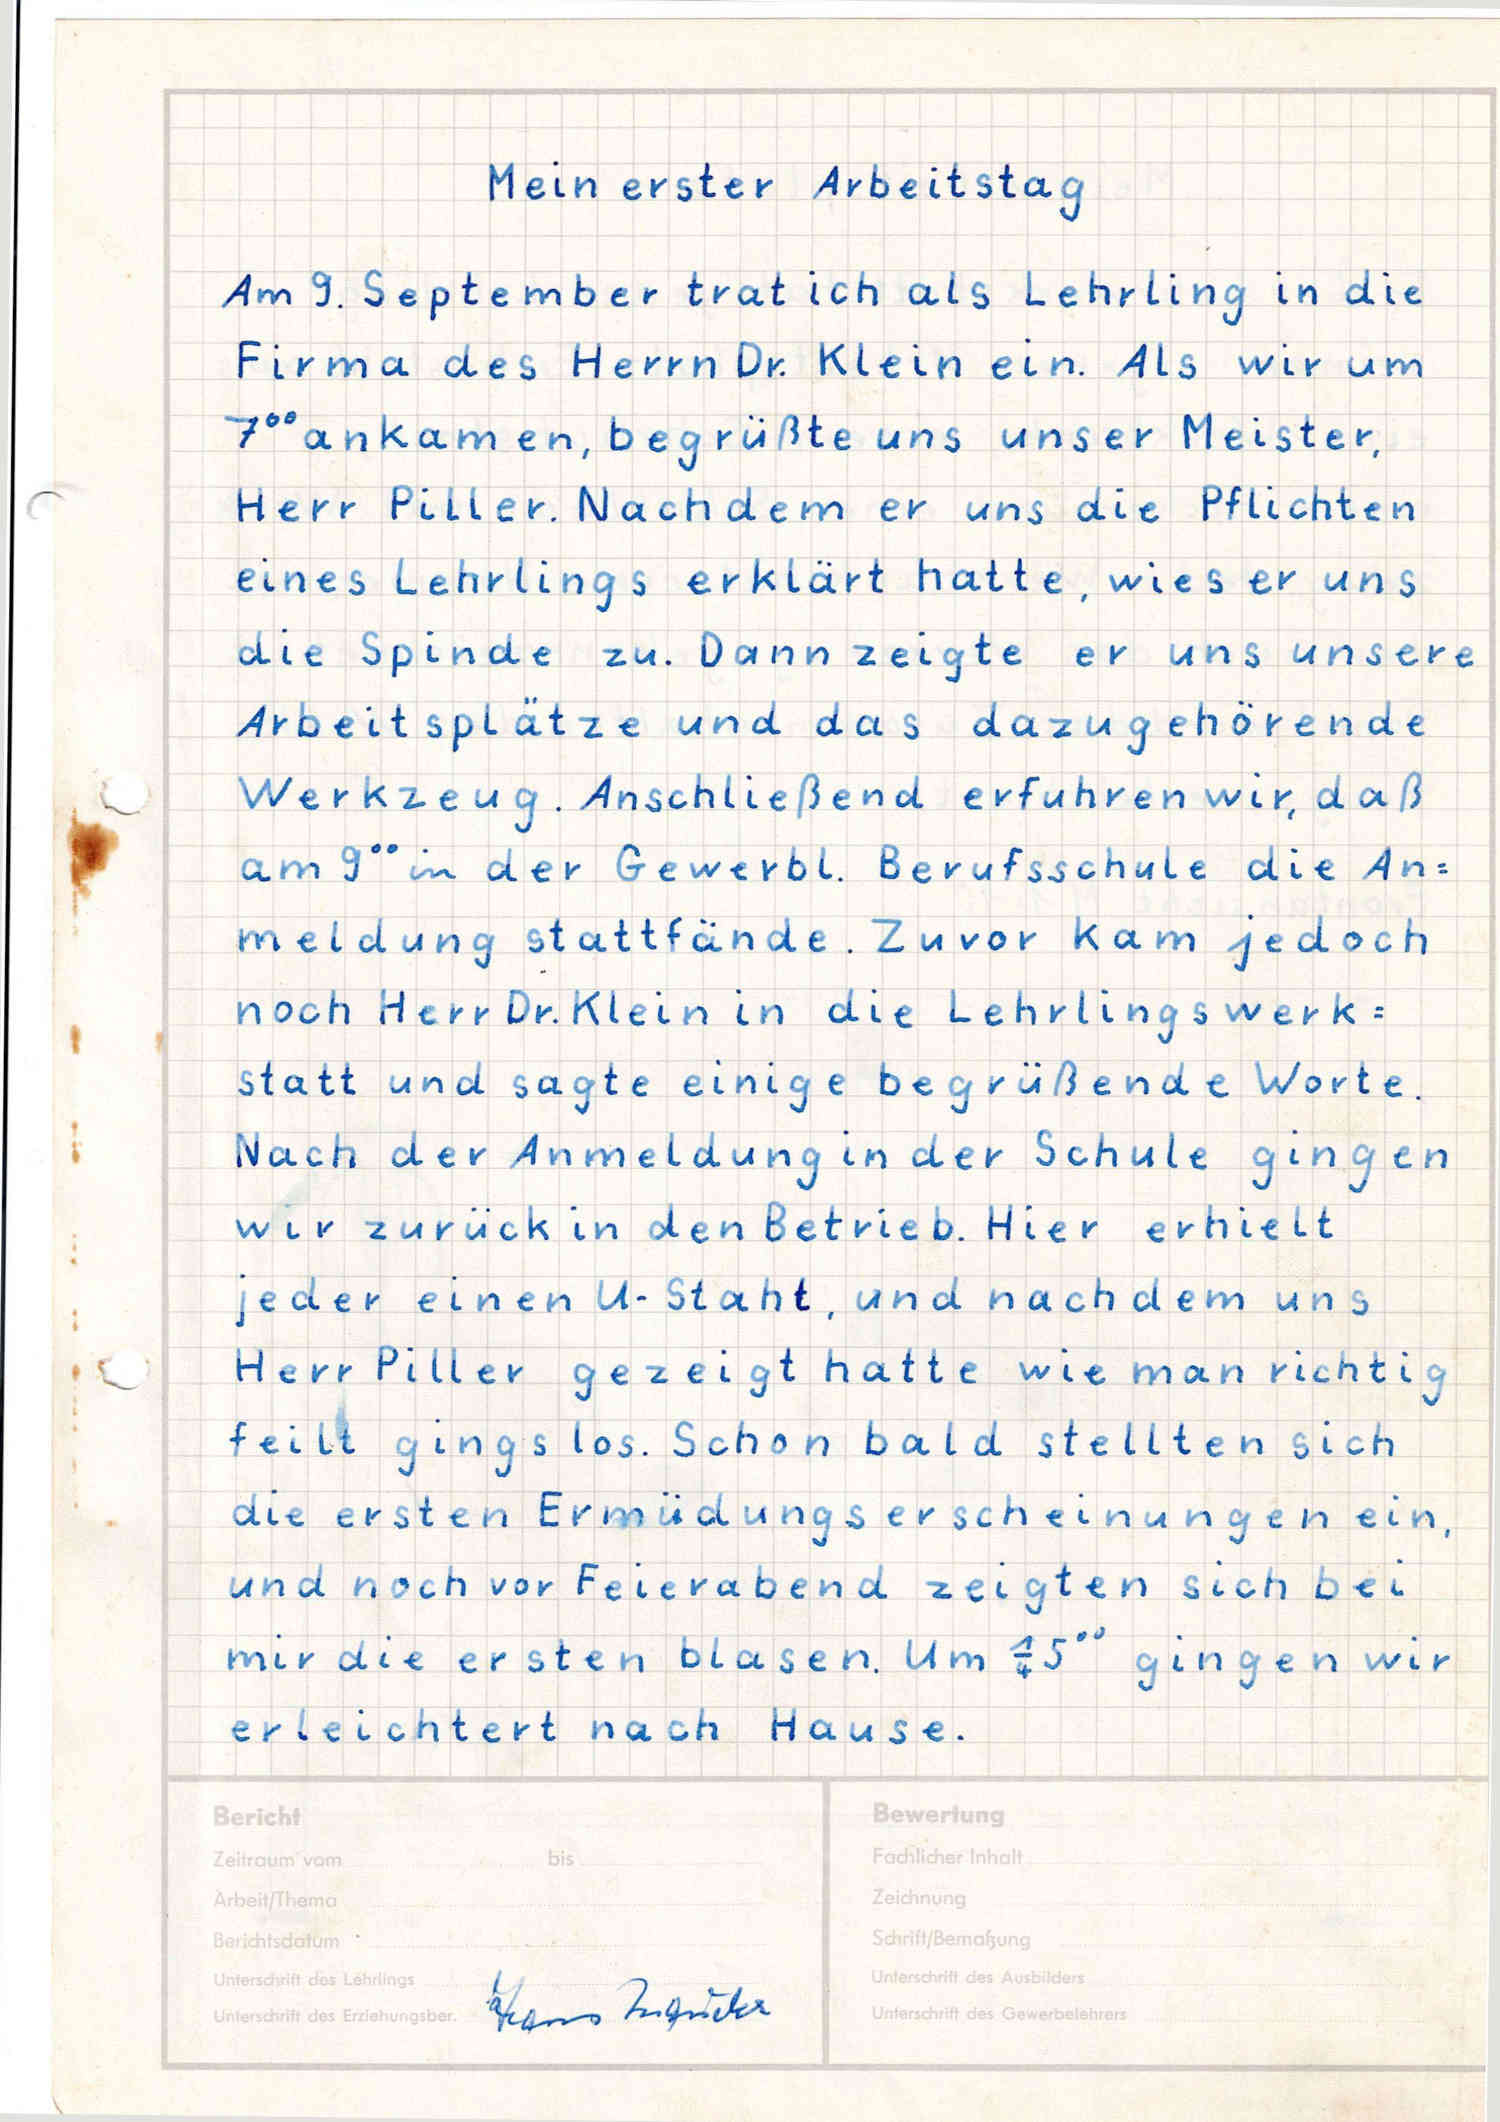 Mein erster Arbeitstag
Am 9. September trat ich als Lehrling in die
Firma des Herrn Dr. Klein ein. Als wir um
7⁰⁰ ankamen, begrüßte uns unser Meister,
Herr Piller. Nachdem er uns die Pflichten
eines Lehrlings erklärt hatte, wies er uns
die Spinde zu. Dann zeigte er uns unsere
Arbeitsplätze und das dazugehörende
Werkzeug. Anschließend erfuhren wir, daß
am 9⁰⁰ in der Gewerbl. Berufsschule die An=
meldung stattfände. Zuvor kam jedoch
noch Herr Dr. Klein in die Lehrlingswerk=
statt und sagte einige begrüßende Worte.
Nach der Anmeldung in der Schule gingen
wir zurück in den Betrieb. Hier erhielt
jeder einen U-Staht, und nachdem uns
Herr Piller gezeigt hatte wie man richtig
feilt gings los. Schon bald stellten sich
die ersten Ermüdungserscheinungen ein,
und noch vor Feierabend zeigten sich bei
mir die ersten blasen. Um ¼5⁰⁰ gingen wir
erleichtert nach Hause.
Bericht
Zeitraum vom bis
Arbeit/Thema
Berichtsdatum
Unterschrift des Lehrlings
Unterschrift des Erziehungsber. Hans
Bewertung
Fachlicher Inhalt
Zeichnung
Schrift/Bemaßung
Unterschrift des Ausbilders
Unterschrift des Gewerbelehrers